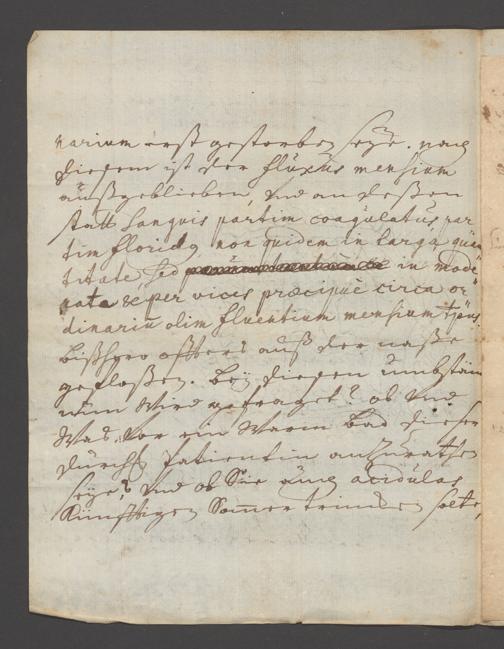 narium erst gestorben seye. nach
diesem ist der fluxus mensium
außgeblieben, und an deßen
statt sanguis partim coagulatus par
tim floridus non quidem in larga quan
titate sed in mode
rata & per vices præcipuè circa or
dinariu olim fluentium mensium temp9
bißhero offters auß der naße
gefloßen. Bey diesen umbstän
nun wird gefraget? ob und
was vor ein warm bad dieser
Patientin anzurathen
seye? und ob Sie auch acidulas
Künfftigen Somer trincken solte,